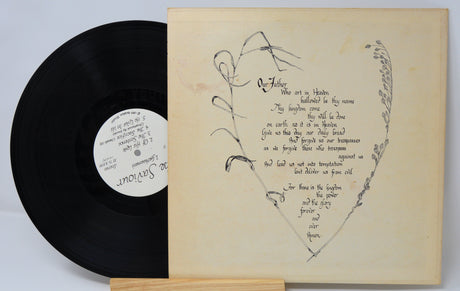 Our Father
Who art in Heaven
hallowed be thy name
Thy kingdom come
thy will be done
on earth as it is in Heaven
Give us this day our daily bread
And forgive us our trespasses
as we forgive those who trespass
against us
And lead us not into temptation
but deliver us from evil
For thine is the kingdom
the power
and the glory
forever
and
ever
Amen
Saviour